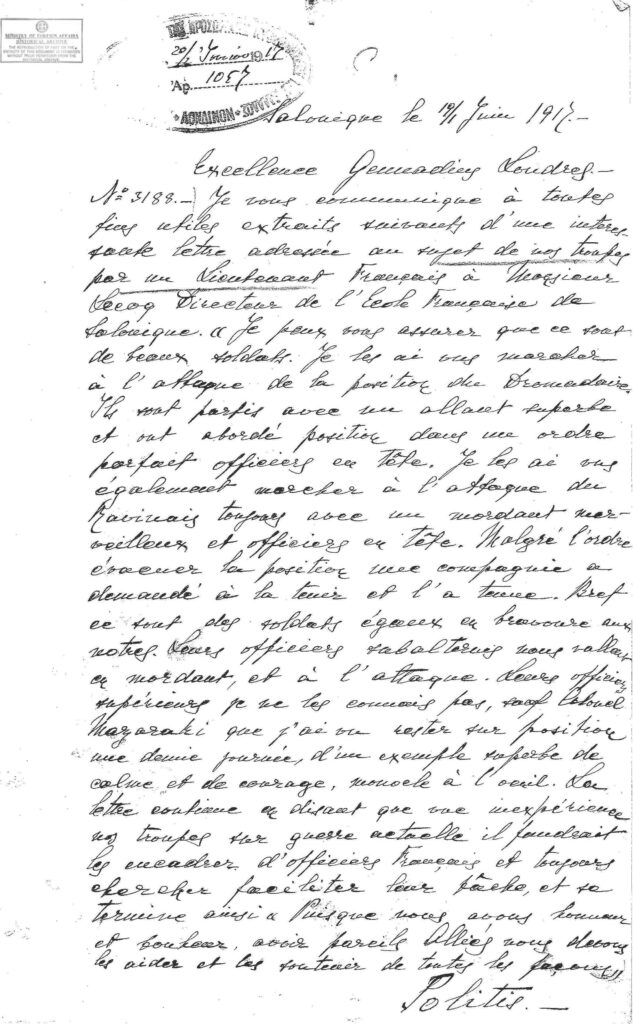 MINISTRY OF FOREIGN AFFAIRS
HISTORICAL ARCHIVE
1917
Αρ. 1057
ΑΘΗΝΑΙΟΝ
Salonique le 19/1 Juin 1917.-
Excellence Gennadius Londres.-
No 3188.-) Je vous communique à toutes
fins utiles extraits suivants d'une interes-
sante lettre adressée au sujet de nos troupes
par un Lieutenant Français à Monsieur
Lecoq Directeur de l'Ecole Française de
Salonique. « Je peux vous assurer que ce sont
de beaux soldats. Je les ai vus marcher
à l'attaque de la position du Dromadaire.
Ils sont partis avec un allant superbe
et ont abordé position dans un ordre
parfait officiers en tête. Je les ai vus
également marcher à l'attaque du
Ravinais toujours avec un mordant mer-
veilleux et officiers en tête. Malgré l'ordre
évacuer la position une compagnie a
demandé à la tenir et l'a tenue. Bref
ce sont des soldats égaux en bravoure aux
notres. Leurs officiers subalternes nous vallent
en mordant, et à l'attaque. Leurs officiers
supérieurs je ne les connais pas, sauf Colonel
Mazaraki que j'ai vu rester sur position
une demie journée, d'un exemple superbe de
calme et de courage, monocle à l'oeuil. La
lettre continue en disant que vue inexpérience
nos troupes sur guerre actuelle il faudrait
les encadrer d'officiers Français et toujours
chercher faciliter leur tâche, et se
termine ainsi « Puisque nous avons honneur
et bonheur, avoir pareils Alliés nous devons
les aider et les soutenir de toutes les façons »
Politis.-